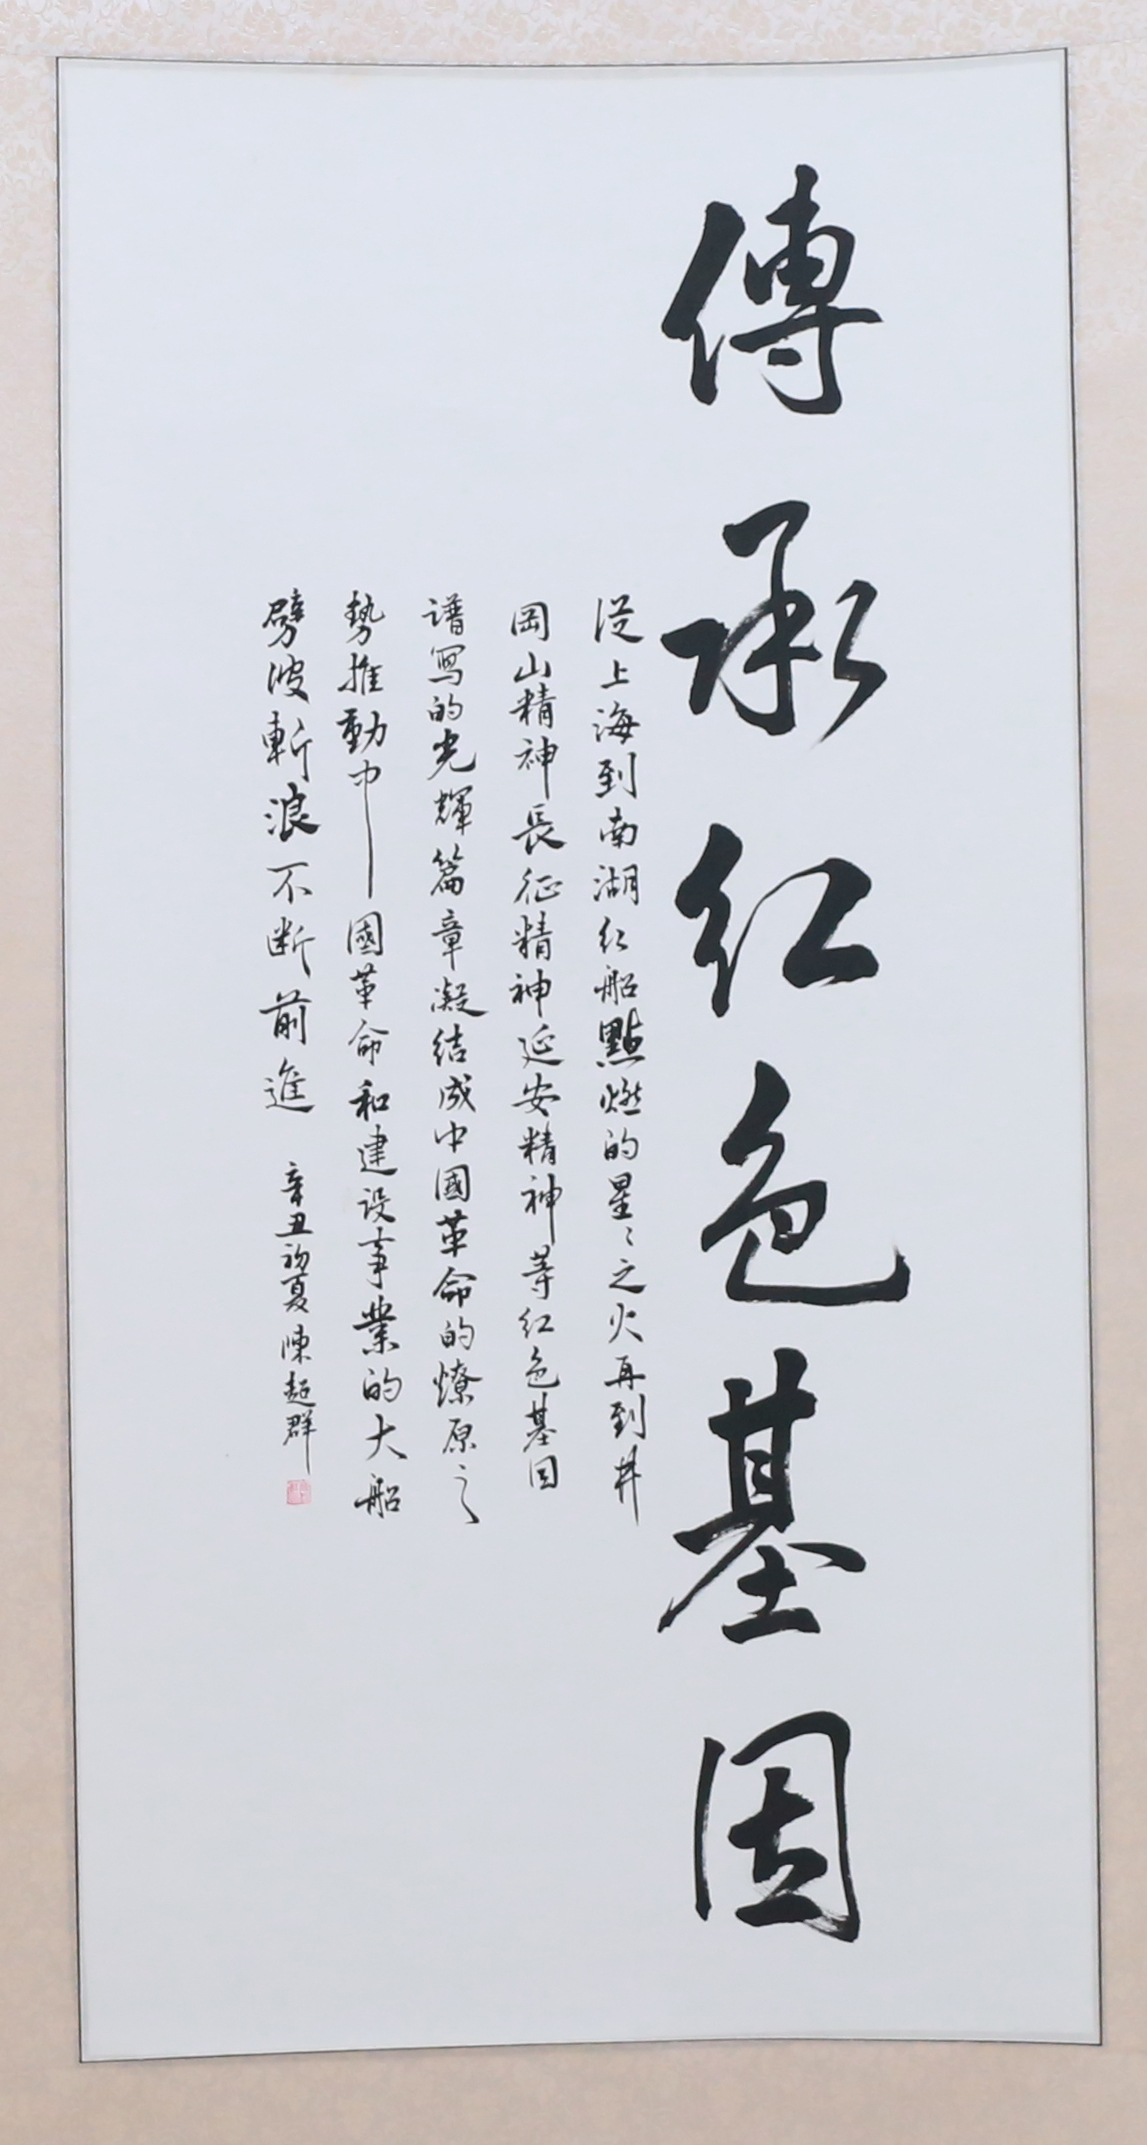 傳承红色基因
從上海到南湖红船點燃的星々之火再到井
岡山精神長征精神延安精神等红色基因
譜寫的光輝篇章凝结成中國革命的燎原之
勢推動中國革命和建设事業的大船
劈波斬浪不断前進 辛丑初夏陳超群